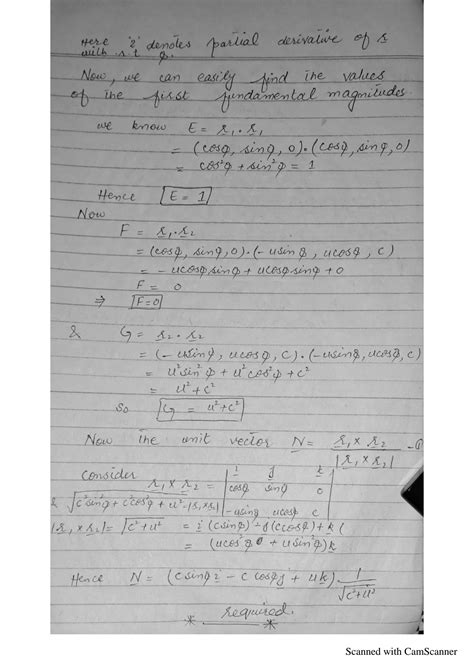 Here '2' denotes partial derivative of r
with r.t φ.
Now, we can easily find the values
of the first fundamental magnitudes.
we know E = r₁ . r₁
= (cosφ, sinφ, 0) . (cosφ, sinφ, 0)
= cos²φ + sin²φ = 1
Hence E = 1
Now
F = r₁ . r₂
= (cosφ, sinφ, 0) . (- usinφ, ucosφ, c)
= - ucosφ sinφ + ucosφ sinφ + 0
F = 0
⇒ F = 0
& G = r₂ . r₂
= (- usinφ, ucosφ, c) . (- usinφ, ucosφ, c)
= u²sin²φ + u²cos²φ + c²
= u² + c²
So G = u² + c²
Now the unit vector N = r₁ × r₂ / |r₁ × r₂|
Consider
r₁ × r₂ = | i j k |
| cosφ sinφ 0 |
| -usinφ ucosφ c |
& √c²sin²φ + c²cos²φ + u² = |r₁ × r₂|
|r₁ × r₂| = √c² + u² = i (csinφ) - j (ccosφ) + k (
(ucos²φ + usin²φ) k
Hence N = (c sinφ i - c cosφ j + u k) 1 / √c² + u²
required.
Scanned with CamScanner